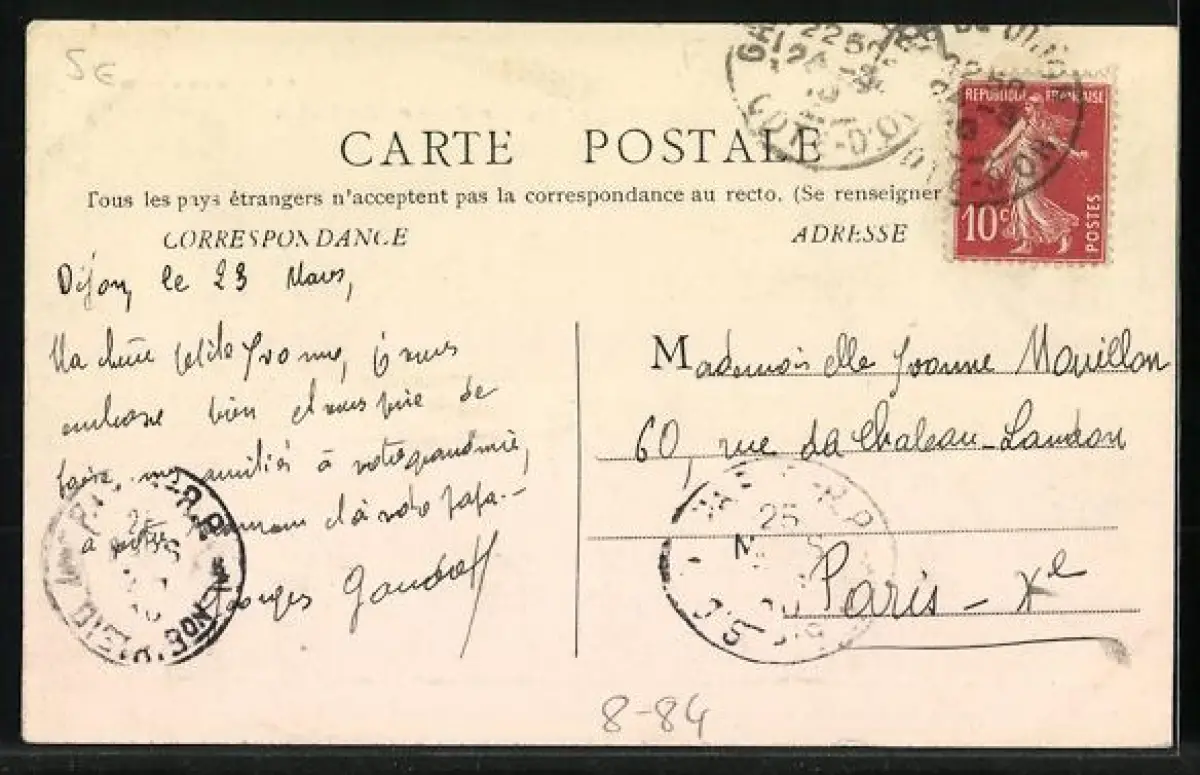 5 €
CARTE POSTALE
Tous les pays étrangers n'acceptent pas la correspondance au recto. (Se renseigner
CORRESPONDANCE
ADRESSE
REPUBLIQUE FRANÇAISE
10c
POSTES
Dijon, le 23 Mars,
Ma chère petite Yvonne, je vous
embrasse bien et vous prie de
faire, mes amitiés à votre grand mère,
à votre maman et à votre papa.-
Georges
Mademoiselle Yvonne Mouillon
60, rue du Chateau-Landon
Paris - Xe
25
8-84